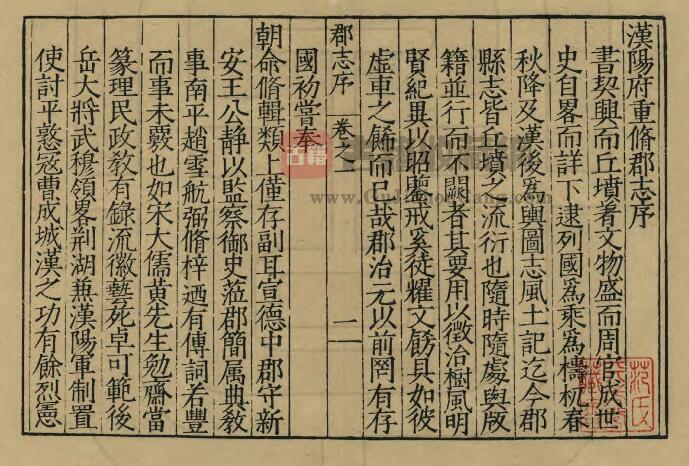 漢陽府重脩郡志序
書契興而丘墳著文物盛而周官成世
史自畧而詳下逮列國爲乘爲檮杌春
秋降及漢後爲輿圖志風土記迄今郡
縣志皆丘墳之流衍也隨時隨處與版
籍並行而不闕者其要用以徵治樹風明
賢紀異以昭鑒戒奚徒耀文餙具如彼
虛車之餙而已哉郡治元以前罔有存
郡志序 卷之一 二
國初嘗奉
朝命脩輯類上僅存副耳宣德中郡守新
安王公靜以監察御史蒞郡簡属典教
事南平趙雪航弼脩梓迺有傳詞若豐
而事未覈也如宋大儒黄先生勉齋當
篆理民政敎有錄流徽藝苑卓可範後
岳大將武穆領畧荆湖兼漢陽軍制置
使討平憝宼曹成城漢之功有餘烈憲
范氏
古籍